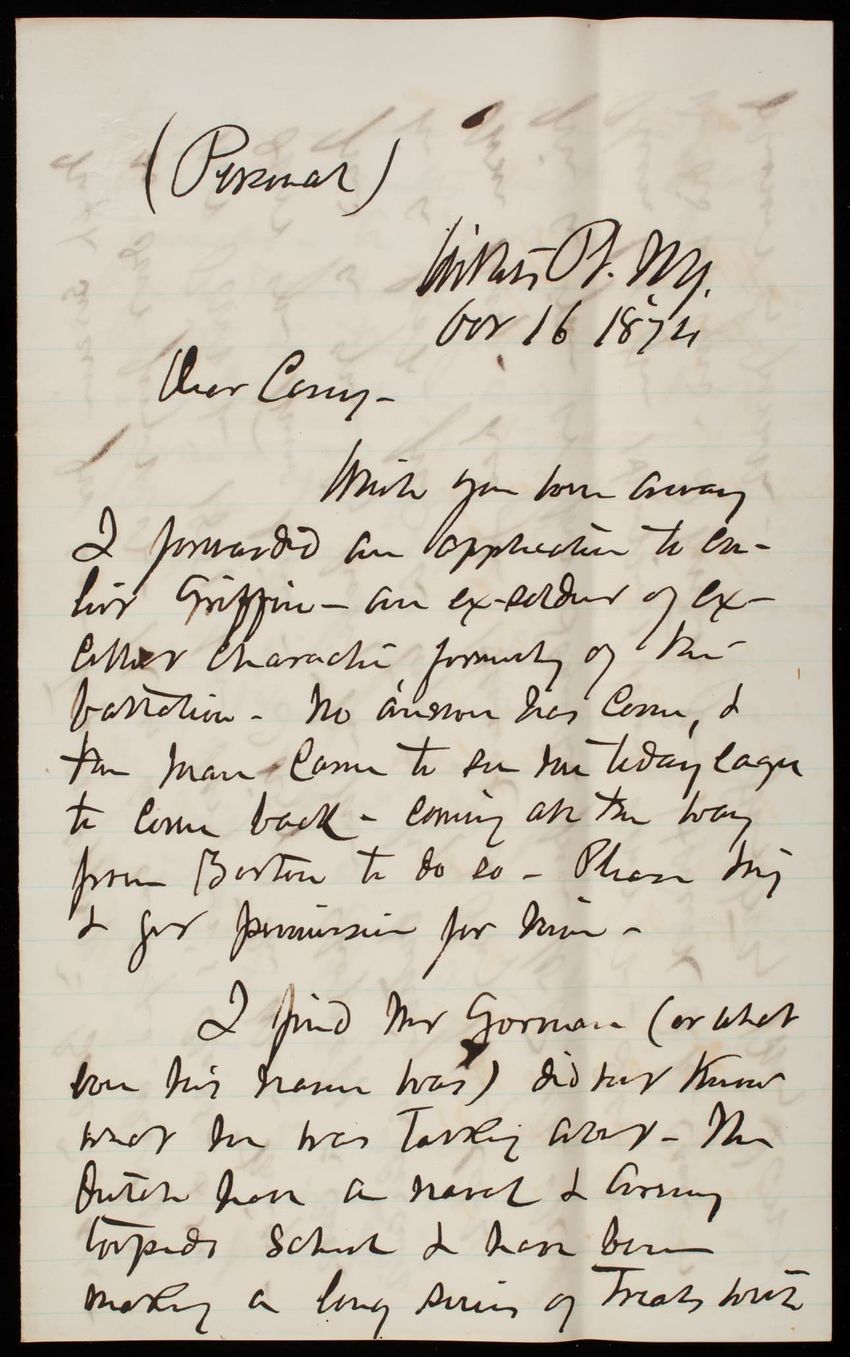 (Personal)
Willets Pt. N.Y.
Oct 16 1874
Dear Casey -
While you were away
I forwarded an application to en-
list Griffin - an ex-soldier of ex-
cellent character formerly of this
battalion - No answer has come, &
the man came to see me today eager
to come back - coming all the way
from Boston to do so - Please try
& get permission for him -
I find Mr Gorman (or what
ever his name was) did not know
what he was talking about - The
Dutch have a naval & army
torpedo school & have been
making a long series of trials with